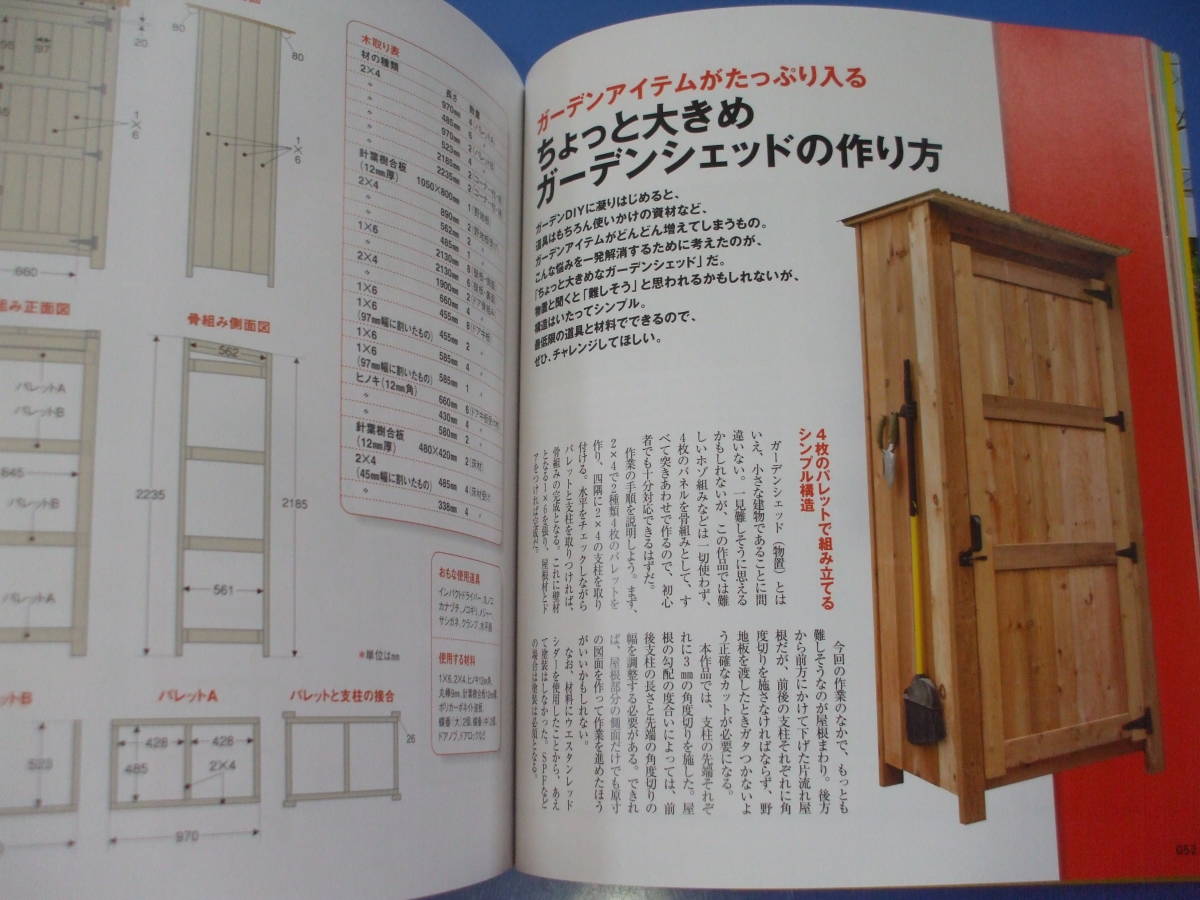 面図
80
80
97
20
1×6
1×6
660
組み正面図
パレットA
パレットB
845
パレットB
パレットA
骨組み側面図
562
2235
2185
561
*単位はmm
ットB
523
パレットA
428
428
485
2×4
970
パレットと支柱の接合
26
木取り表
材の種類
長さ
数量
2×4
970mm
485mm
970mm
523mm
2185mm
2235mm
針葉樹合板
(12mm厚)
1050×800mm
2×4
890mm
562mm
1×6
485mm
2130mm
2×4
2130mm
1900mm
1×6
660mm
1×6
(97mm幅に割いたもの)
455mm
455mm
1×6
585mm
1×6
(97mm幅に割いたもの)
585mm
ヒノキ(12mm角)
660mm
430mm
580mm
針葉樹合板
(12mm厚)
480×420mm
2(床材)
2×4
(45mm幅に割いたもの)
485mm
4(床材受け)
338mm
4
おもな使用道具
インパクトドライバー、丸ノコ
カナヅチ、ノコギリ、メジャー
サシガネ、クランプ、水平器
使用する材料
1×6、2×4、ヒノキ12mm角、
丸棒9mm、針葉樹合板12mm厚
ポリカーボネイト波板
蝶番(大)2個、蝶番(中)2個
ドアノブ、ドアロックなど
ガーデンアイテムがたっぷり入る
ちょっと大きめ
ガーデンシェッドの作り方
ガーデンDIYに凝りはじめると、
道具はもちろん使いかけの資材など、
ガーデンアイテムがどんどん増えてしまうもの。
こんな悩みを一発解消するために考えたのが、
「ちょっと大きめなガーデンシェッド」だ。
物置と聞くと「難しそう」と思われるかもしれないが、
構造はいたってシンプル。
最低限の道具と材料でできるので、
ぜひ、チャレンジしてほしい。
4枚のパレットで組み立てる
シンプル構造
ガーデンシェッド(物置)とは
いえ、小さな建物であることに間
違いない。一見難しそうに思える
かもしれないが、この作品では難
しいホゾ組みなどは一切使わず、
4枚のパネルを骨組みとして、す
べて突きあわせで作るので、初心
者でも十分対応できるはずだ。
作業の手順を説明しよう。まず、
2×4で2種類4枚のパレットを
作り、四隅に2×4の支柱を取り
付ける。水平をチェックしながら
パレットと支柱を取りつければ、
骨組みの完成となる。これに壁材
となる1×6を張り、屋根材とド
アをつければ完成だ。
今回の作業のなかで、もっとも
難しそうなのが屋根まわり。後方
から前方にかけて下げた片流れ屋
根だが、前後の支柱それぞれに角
度切りを施さなければならず、野
地板を渡したときガタつかないよ
う正確なカットが必要になる。
本作品では、支柱の先端それぞ
れに3mmの角度切りを施した。屋
根の勾配の度合いによっては、前
後支柱の長さと先端の角度切りの
幅を調整する必要がある。できれ
ば、屋根部分の側面だけでも原寸
の図面を作って作業を進めたほう
がいいかもしれない。
なお、材料にウエスタンレッド
シダーを使用したことから、あえ
て塗装はしなかった。SPFなど
の場合は塗装は必須となる。
052